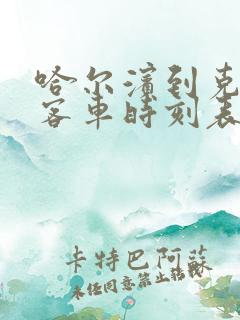 哈尔滨到克
客车时刻表
卡特巴阿蘇
未经同意禁止转载